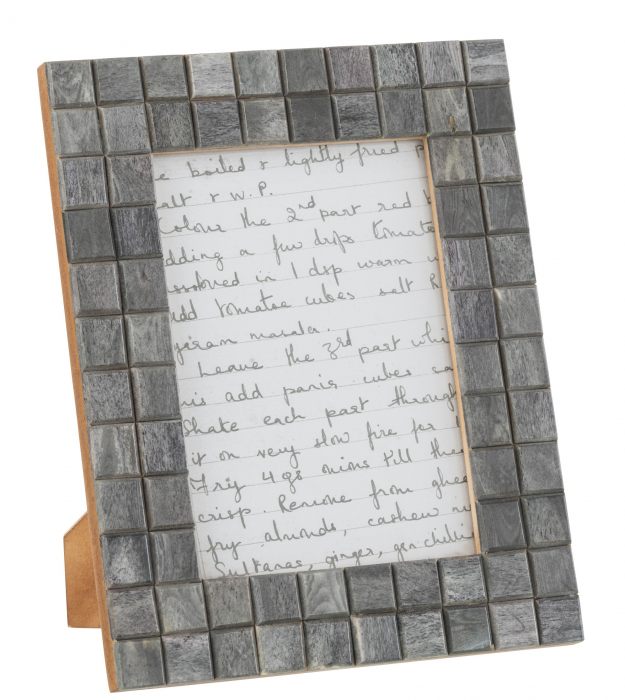 e boiled & lightly fried p
alt & W.P.
Colour the 2nd part red b
dding a few drops tomato
ssolved in 1 dsp warm w
add tomatoe cubes salt &
garam masala.
Leave the 3rd part whi
his add panir cubes ca
Shake each part through
it on very slow fire for 1
Frig 4 gs mins till they
crisp. Remove from ghee
fry almonds, cashew nu
Sultanas, ginger, gen chilies